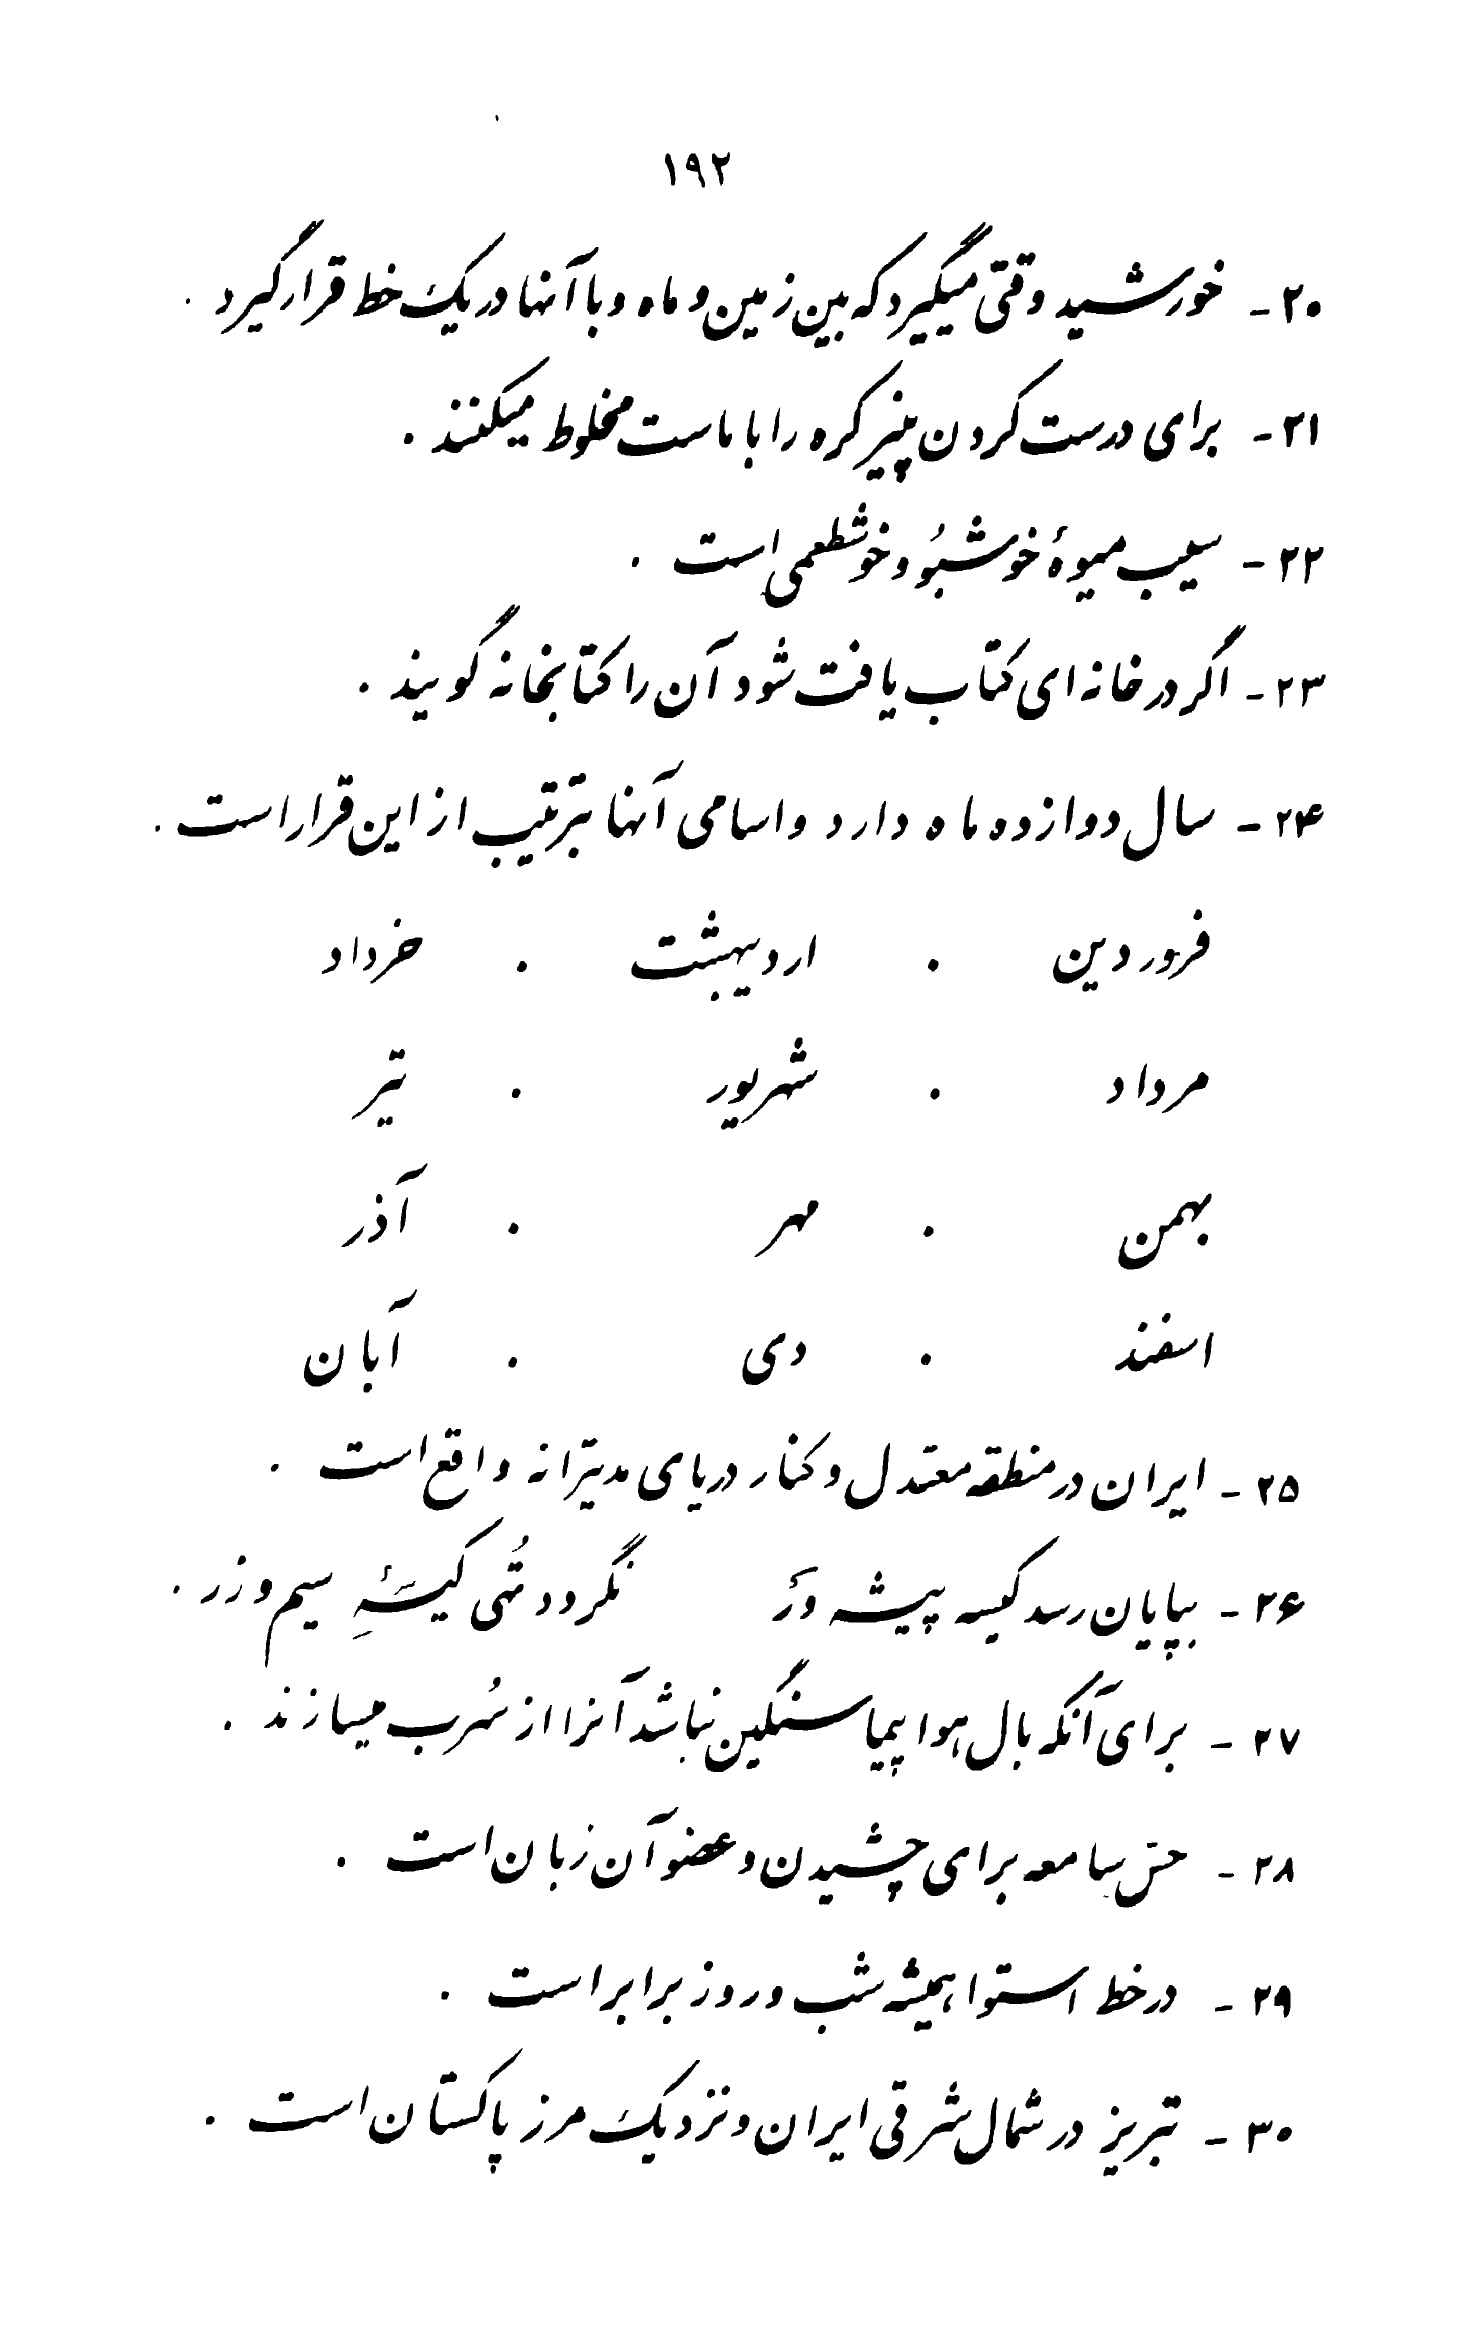 ۱۹۲
۲۰ - خورشید وقتی میگیرد که بین زمین و ماه و با آنها در یک خط قرار گیرد .
۲۱ - برای درست کردن پنیر کره را با ماست مخلوط میکنند .
۲۲ - سیب میوهٔ خوشبُو و خوشطعمی است .
۲۳ - اگر در خانه ای کتاب یافت شود آن را کتابخانه گویند .
۲۴ - سال دوازده ماه دارد و اسامی آنها بترتیب از این قرار است .
فروردین . اردیبهشت . خرداد
مرداد . شهریور . تیر
بهمن . مهر . آذر
اسفند . دی . آبان
۲۵ - ایران در منطقه معتدل و کنار دریای مدیترانه واقع است .
۲۶ - بپایان رسد کیسه پیشه وَر نگردد تُهی کیسَهٔ سیم و زر .
۲۷ - برای آنکه بال هواپیما سنگین نباشد آنرا از سُرب میسازند .
۲۸ - حسّ سامعه برای چشیدن و عضو آن زبان است .
۲۹ - در خط استوا همیشه شب و روز برابر است .
۳۰ - تبریز در شمال شرقی ایران و نزدیک مرز پاکستان است .